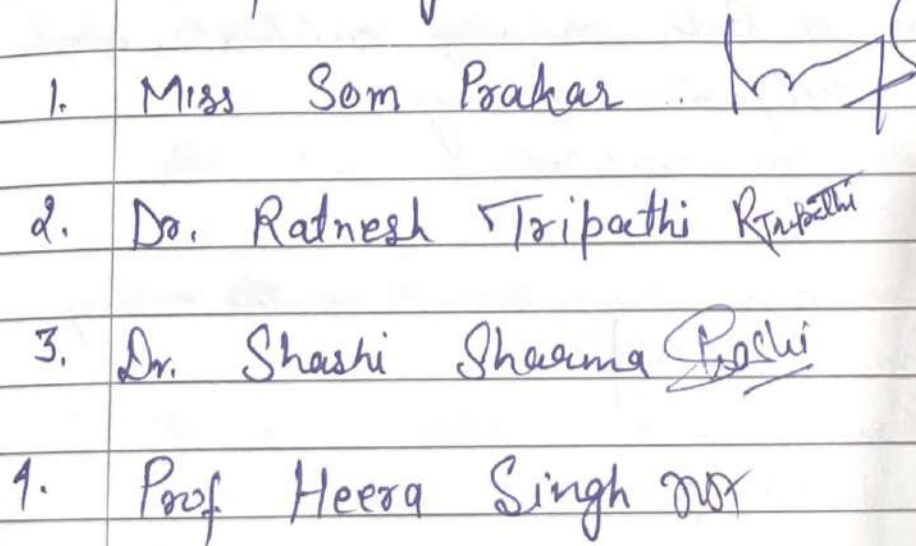 1. Miss Som Prakar
2. Dr. Ratnesh Tripathi RTripathi
3. Dr. Shashi Sharma Shashi
4. Prof Heera Singh